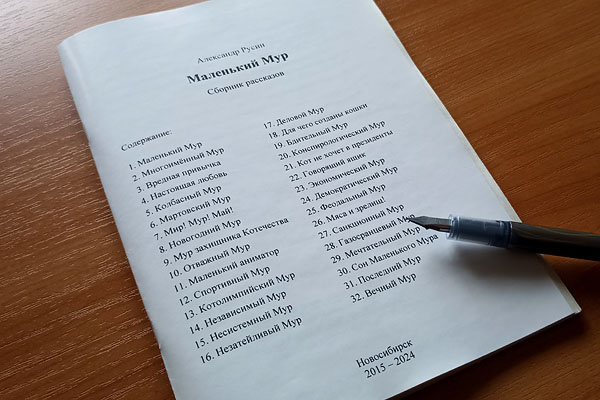 Александр Русин
Маленький Мур
Сборник рассказов
Содержание:
1. Маленький Мур
2. Многоимённый Мур
3. Вредная привычка
4. Настоящая любовь
5. Колбасный Мур
6. Мартовский Мур
7. Мир! Мур! Май!
8. Новогодний Мур
9. Мур захищника Котечества
10. Отважный Мур
11. Маленький аниматор
12. Спортивный Мур
13. Котолимпийский Мур
14. Независимый Мур
15. Несистемный Мур
16. Незатейливый Мур
17. Деловой Мур
18. Для чего созданы кошки
19. Бдительный Мур
20. Конспирологический Мур
21. Кот не хочет в президенты
22. Говорящий ящик
23. Экономический Мур
24. Демократический Мур
25. Феодальный Мур
26. Мяса и зрелищ!
27. Санкционный Мур
28. Газосранцевый
29. Мечтательный
30. Сон Маленького Мура
31. Последний Мур
32. Вечный Мур
Новосибирск
2015 – 2024